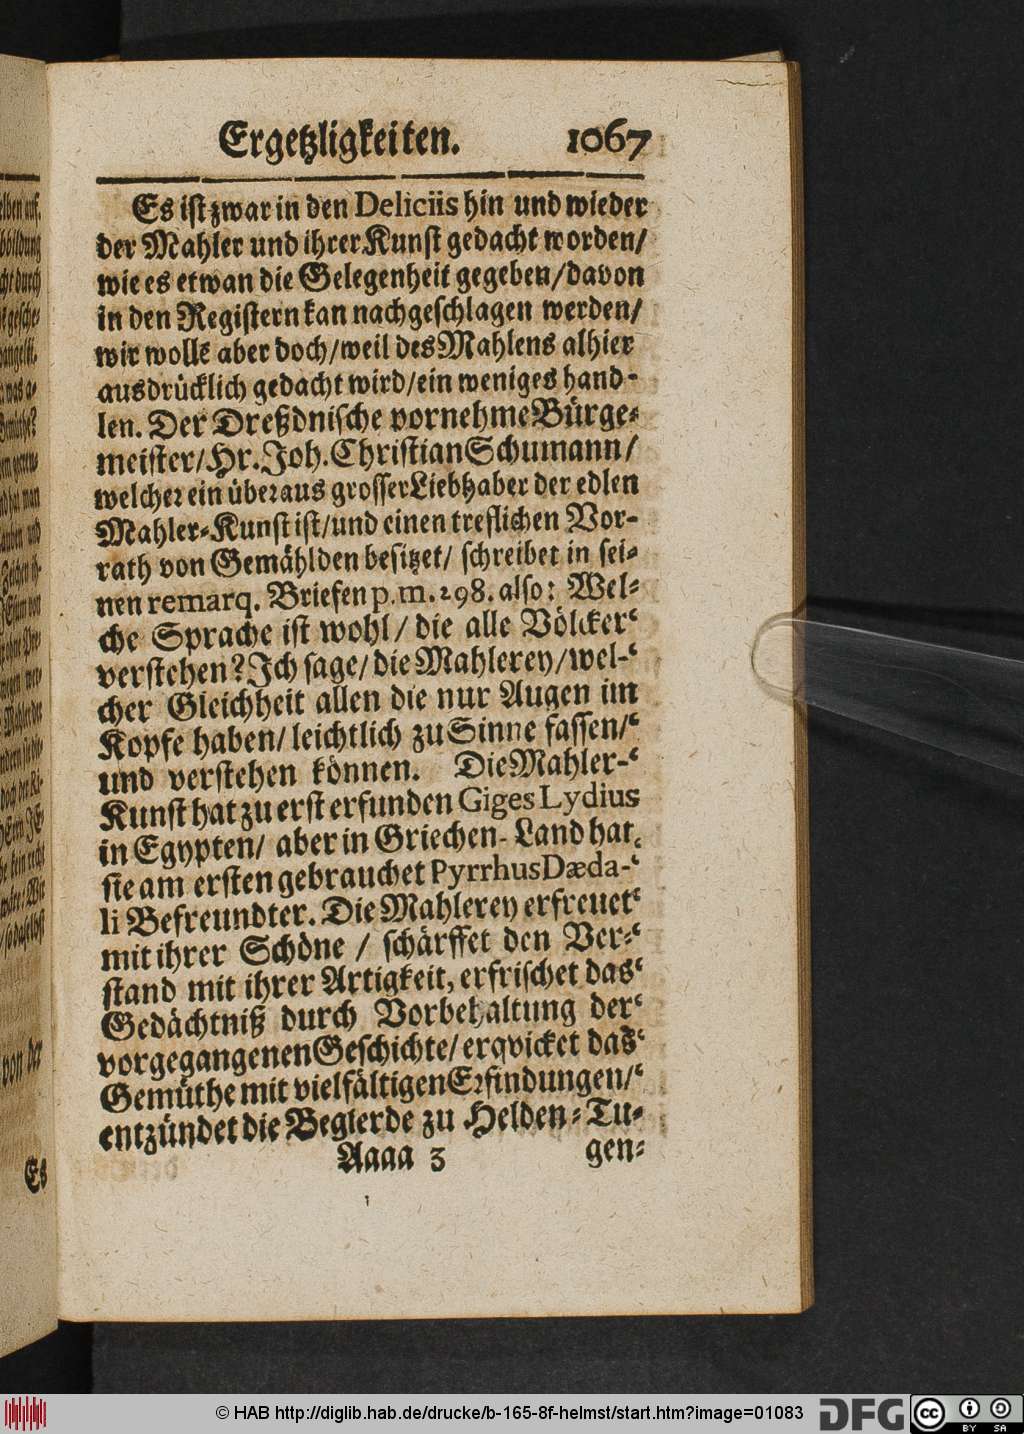 Ergetzligkeiten. 1067
Es ist zwar in den Deliciis hin und wieder
der Mahler und ihrer Kunst gedacht worden/
wie es etwan die Gelegenheit gegeben/davon
in den Registern kan nachgeschlagen werden/
wir wollē aber doch/weil des Mahlens alhier
ausdrücklich gedacht wird/ein weniges hand-
len. Der Dreßdnische vornehme Bürge-
meister/Hr. Joh. Christian Schumann/
welcher ein überaus grosser Liebhaber der edlen
Mahler-Kunst ist/und einen treflichen Vor-
rath von Gemählden besitzet/ schreibet in sei-
nen remarq. Briefen p. m. 298. also: Wel-
che Sprache ist wohl/ die alle Völcker‘
verstehen? Ich sage/ die Mahlerey/wel-‘
cher Gleichheit allen die nur Augen im
Kopfe haben/ leichtlich zu Sinne fassen/‘
und verstehen können. Die Mahler-‘
Kunst hat zu erst erfunden Giges Lydius
in Egypten/ aber in Griechen-Land hat‘
sie am ersten gebrauchet Pyrrhus Dæda-‘
li Befreundter. Die Mahlerey erfreuet‘
mit ihrer Schöne / schärffet den Ver-‘
stand mit ihrer Artigkeit, erfrischet das‘
Gedächtniß durch Vorbehaltung der‘
vorgegangenen Geschichte/ erqvicket das‘
Gemüthe mit vielfältigen Erfindungen/‘
entzündet die Begierde zu Helden-Tu-
Aaaa 3 gen-
von der
Es
© HAB http://diglib.hab.de/drucke/b-165-8f-helmst/start.htm?image=01083
DFG
cc
BY SA